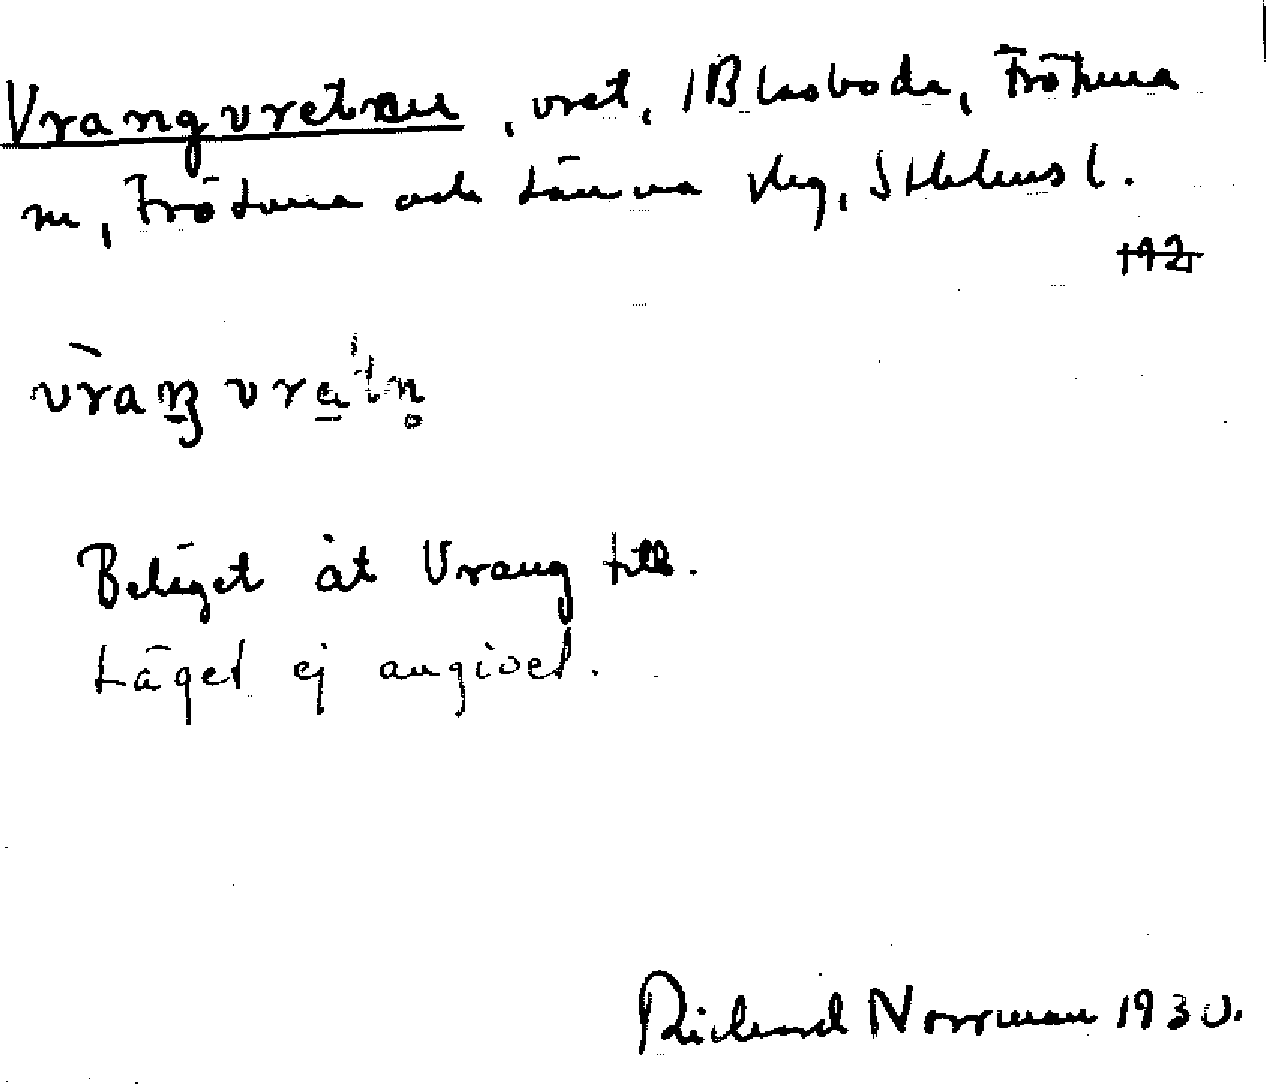 Vrangvreten, vret, 1 B Lasboda, Frötuna
sn, Frötuna och Länna skg, Sthlms l.
142
vraŋvrätn̥
Beläget åt Vrang till.
Läget ej angivet.
Richard Norrman 1930.